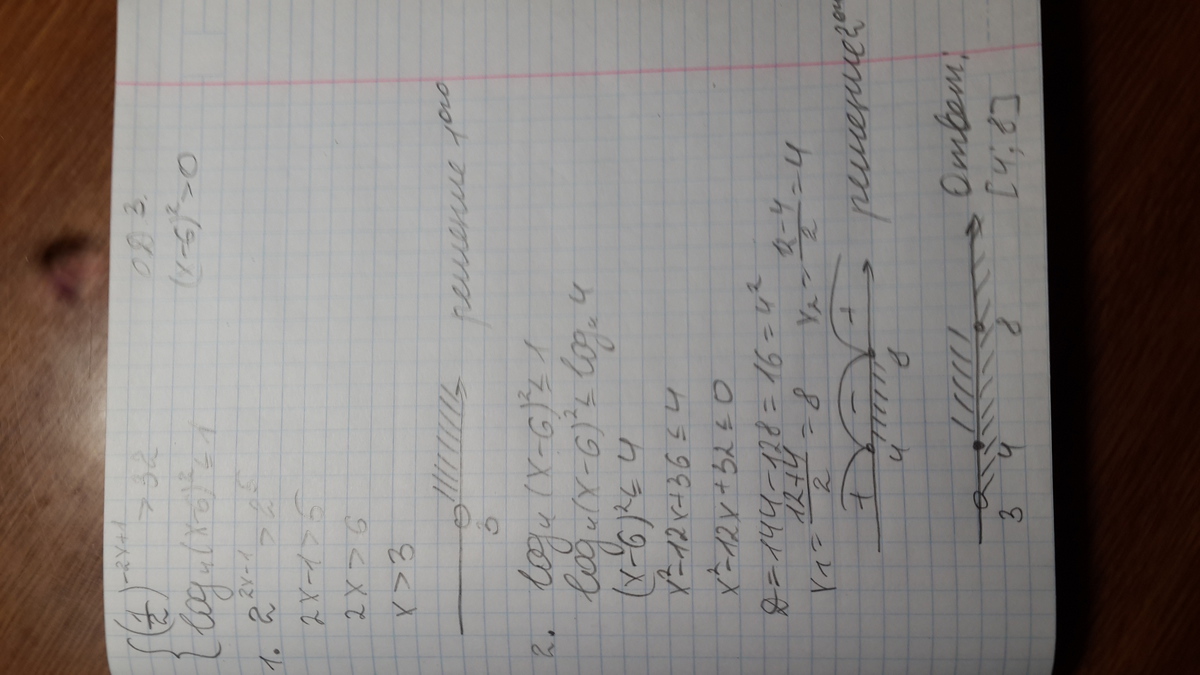 { (1/2)^(-2x+1) > 32 ОДЗ.
{ log₄(x-6)² ≤ 1 (x-6)² > 0
1. 2^(2x-1) > 2⁵
2x-1 > 5
2x > 6
x > 3
3 решение 1ого
2. log₄(x-6)² ≤ 1
log₄(x-6)² ≤ log₄4
(x-6)² ≤ 4
x²-12x+36 ≤ 4
x²-12x+32 ≤ 0
D = 144-128 = 16 = 4²
x₁ = (12+4)/2 = 8 x₂ = (12-4)/2 = 4
+ - +
4 8 решение 2ого
3 4 8 Ответ:
[4; 8]